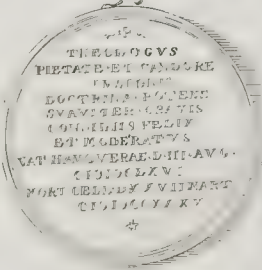 THEOLOGVS
PIETATE·ET CANDORE
INSIGNIS
DOCTRINA·POTENS
SVAVITER·GRAVIS
CONSILIIS FELIX
ET MODERATVS
NAT HANOVERAE·D·III·AVG·
CIↃIↃCLXVI
MORT
MART
CIↃIↃCCXXXV